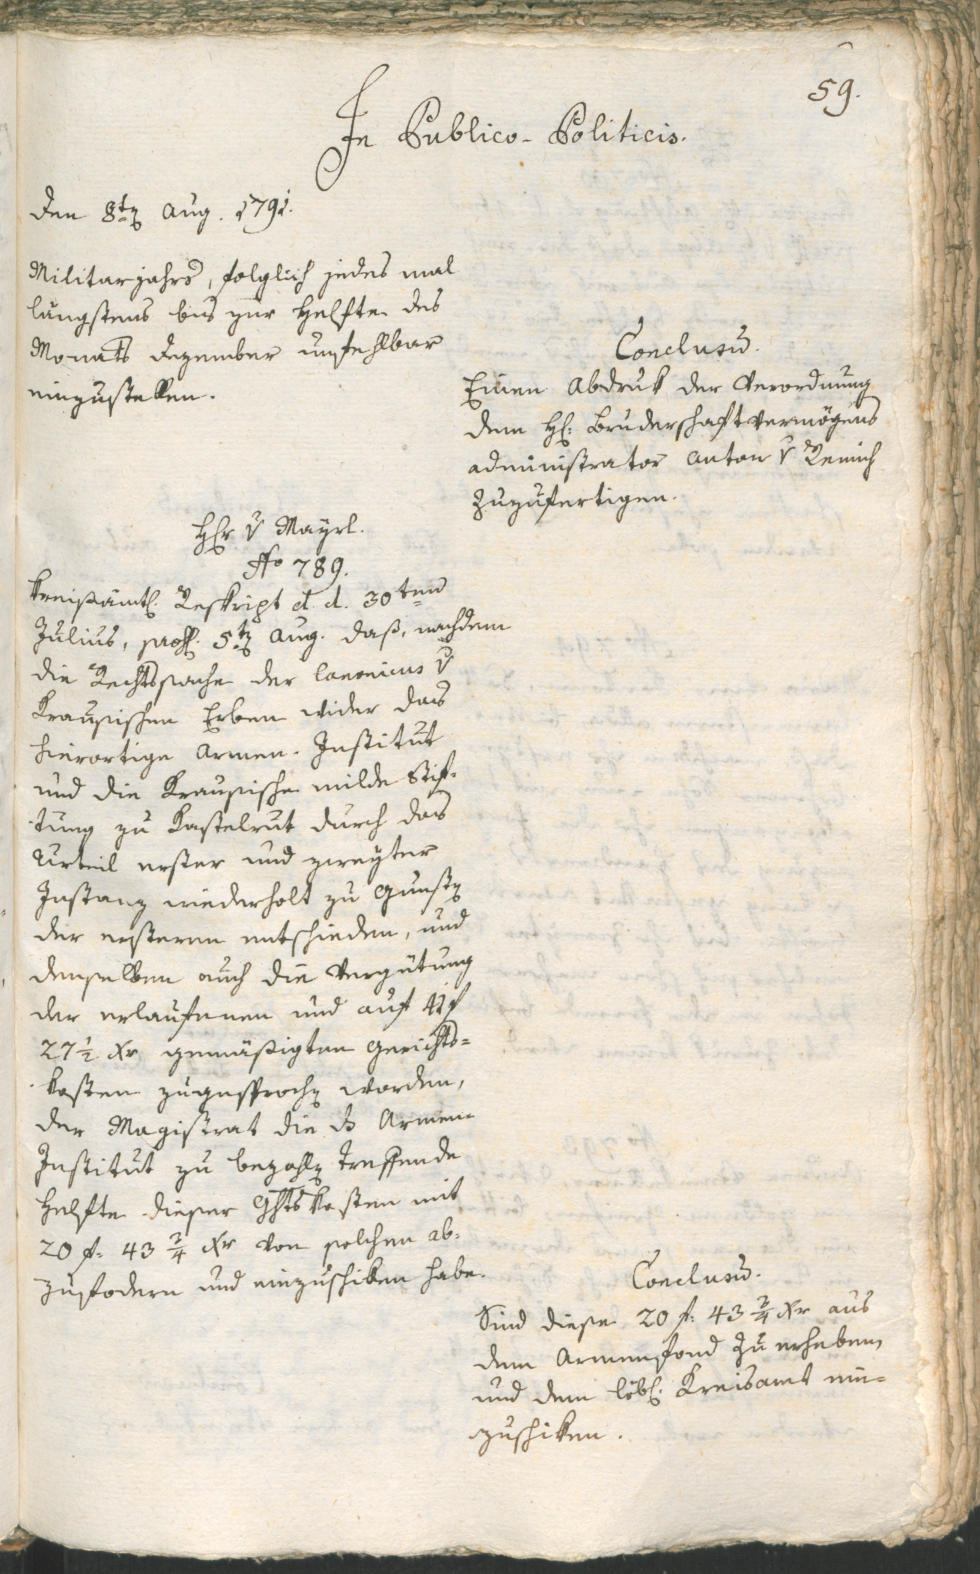 59.
In Publico-Politicis.
Den 8ten Aug. 1791.
Militarjahrs, folglich jedes mal
längstens bis zur Helfte des
Monats Dezember unfehlbar
einzustellen.
Conclusum.
Einen Abdruk der Verordnung
dem H: Bruderschaftvermögens
administrator Anton v Remich
zuzufertigen.
Hr v Mayrl.
No 789.
Kreisämtl. Reskript d. d. 30ten
Julius, prs. 5ten Aug. daß, nachdem
die Rechtssache der Canonicus v
Krausischen Erben wider das
hierortige Armen-Institut
und die Krausische milde Stif-
tung zu Kastelrut durch das
Urteil erster und zweyter
Instanz wiederholt zu Gunsten
der ersteren entschieden, und
denselben auch die Vergütung
der erlaufenen und auf 41 f
27 1/2 Xr gemäßigten Gerichts=
kosten zugesprochen worden,
der Magistrat die das Armen
Institut zu bezahlen treffende
Helfte dieser Ghtskosten mit
20 f. 43 3/4 Xr von solchem ab-
zufodern und einzuschiken habe.
Conclusum.
Sind diese 20 f. 43 3/4 Xr aus
dem Armenfond zu erheben,
und dem löbl. Kreisamt ein=
zuschiken.